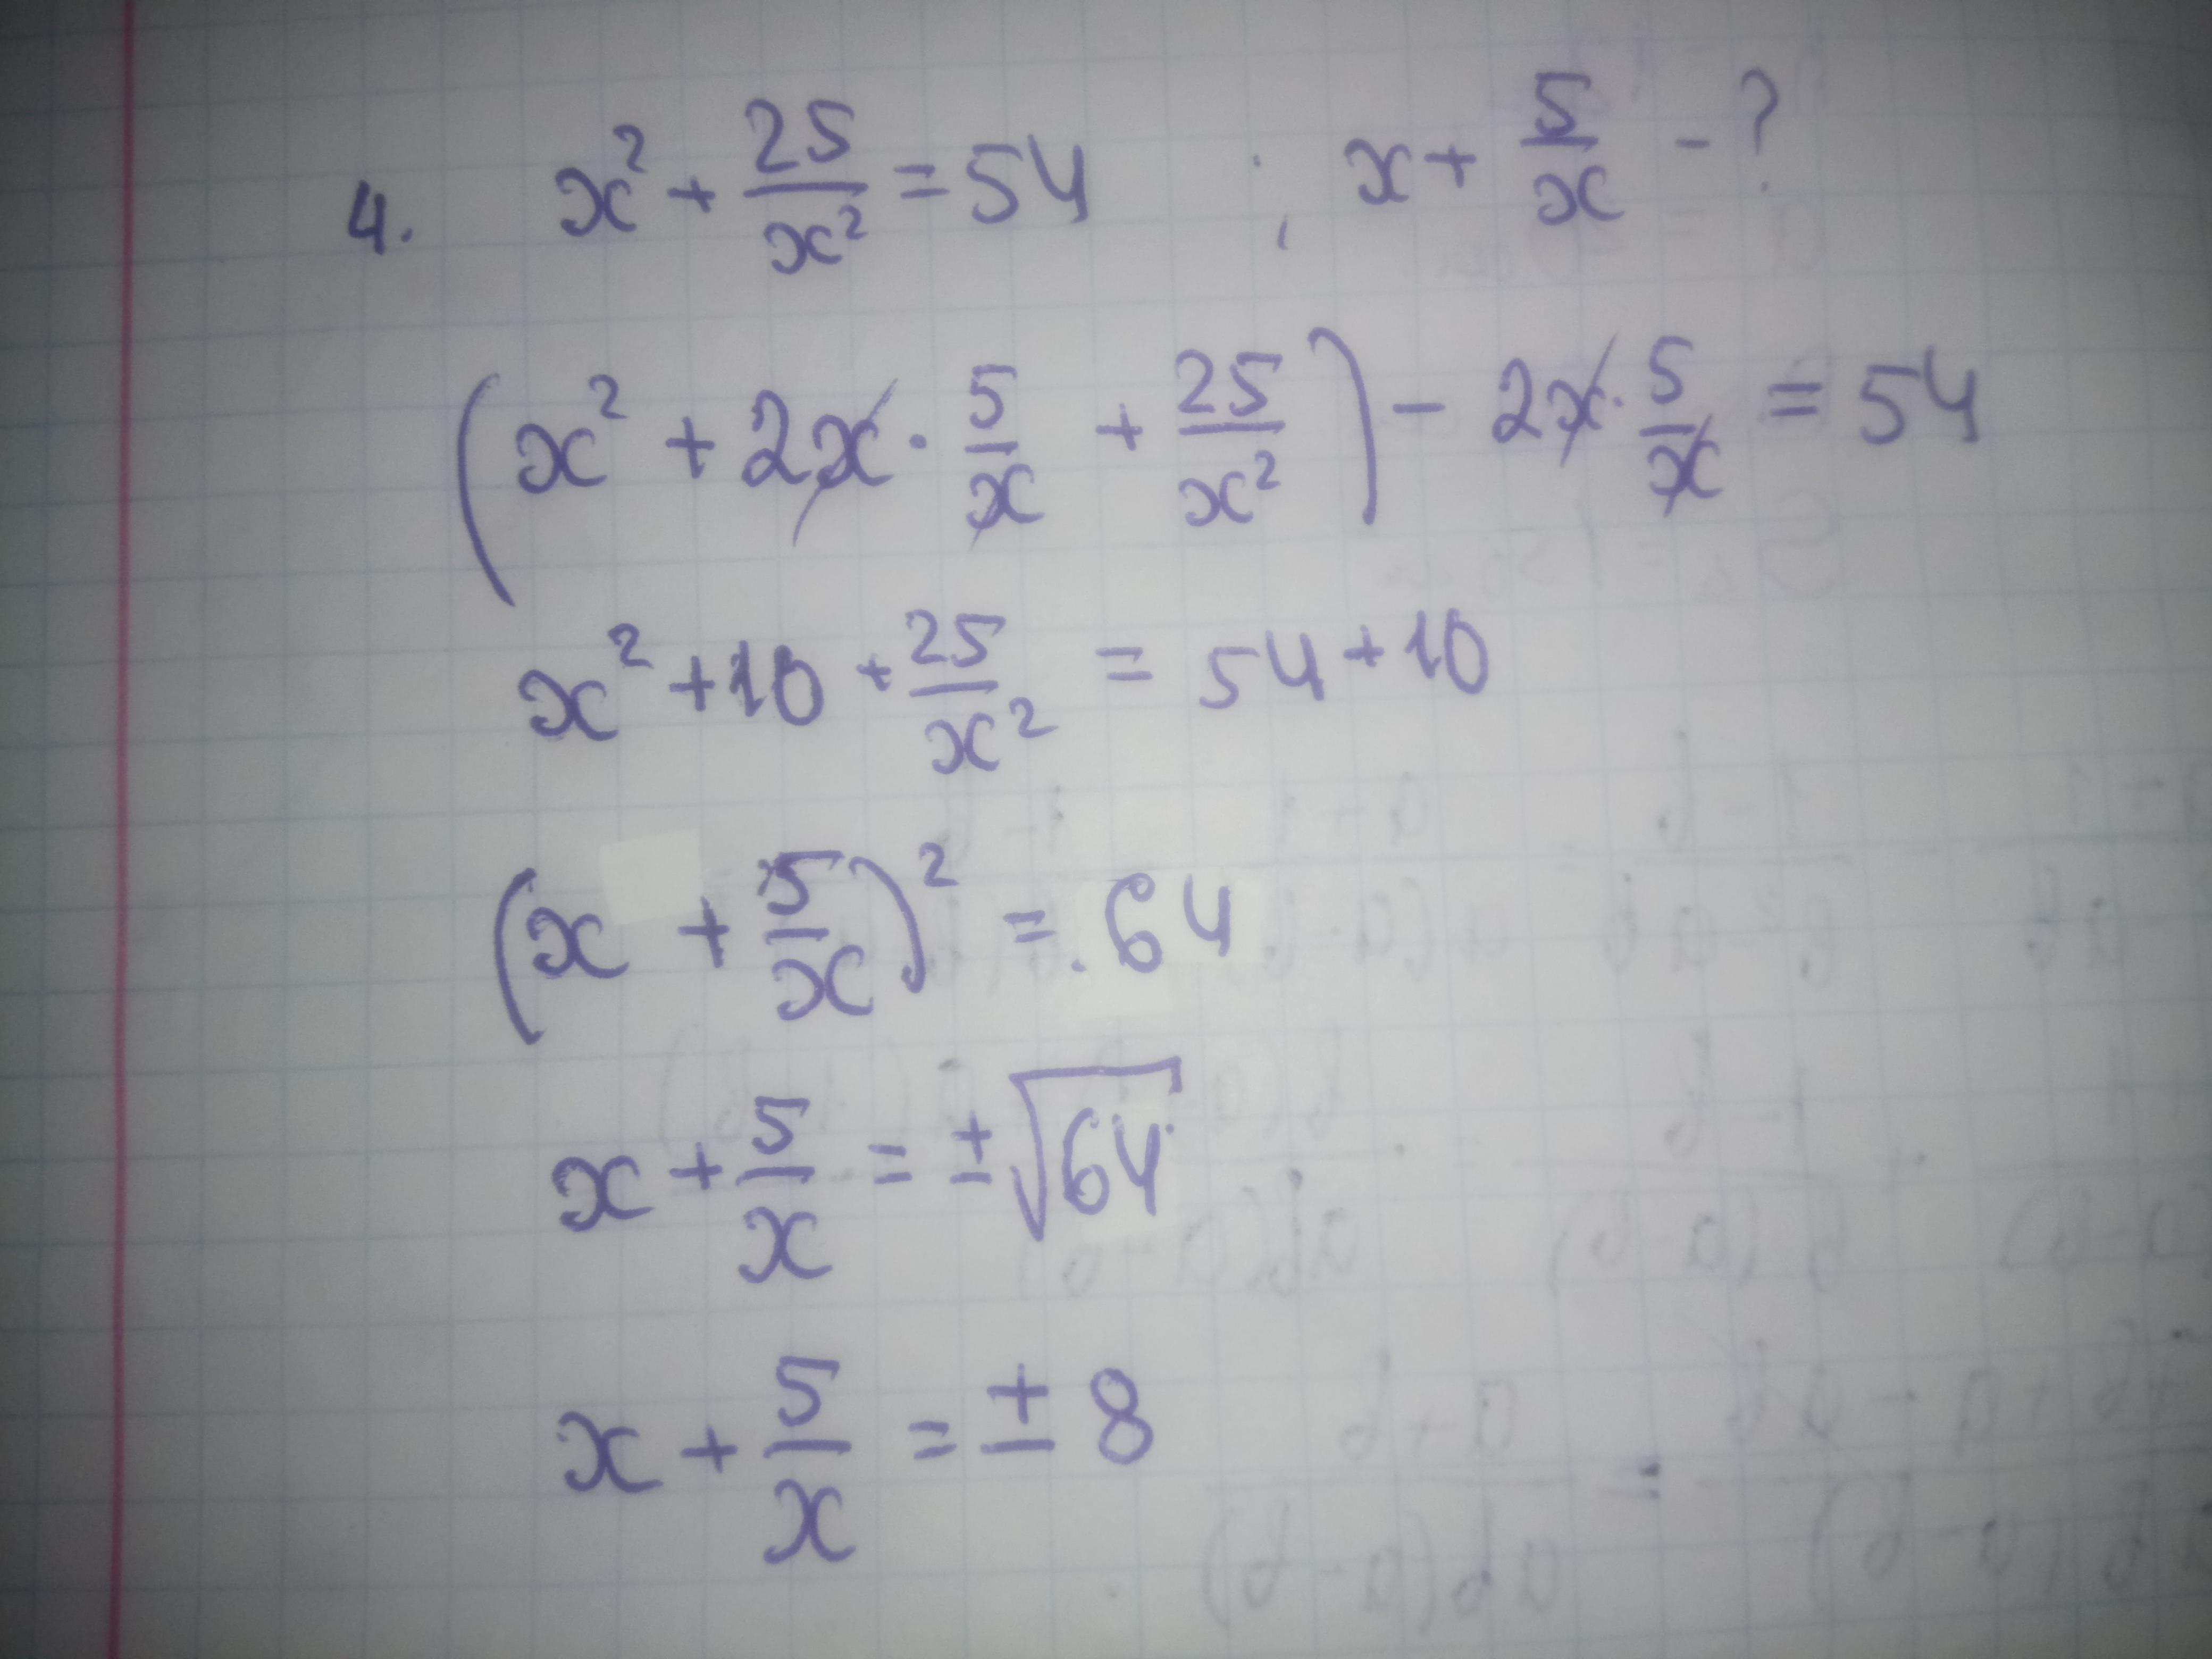 4. x² + 25/x² = 54 ; x + 5/x - ?
(x² + 2x · 5/x + 25/x²) - 2x · 5/x = 54
x² + 10 + 25/x² = 54 + 10
(x + 5/x)² = 64
x + 5/x = ±√64
x + 5/x = ± 8